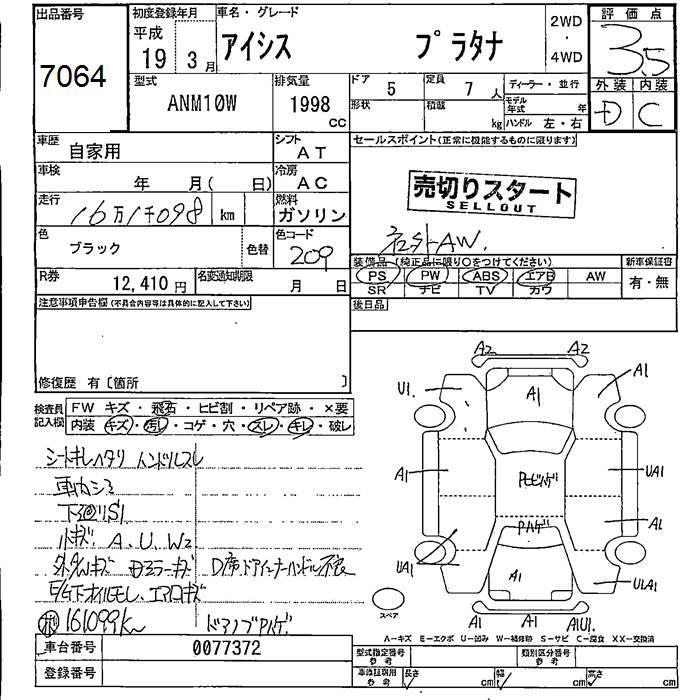 出品番号 7064
初度登録年月 平成 19 3月
車名・グレード アイシス プラタナ
2WD ・ 4WD
評価点 3.5
外装 内装
D C
型式 ANM10W
排気量 1998 CC
ドア 5
定員 7人
ディーラー・並行
形状
積載 kg
モデル年式 年
ハンドル 左・右
車歴 自家用
シフト AT
セールスポイント(正常に機能するものに限ります)
車検 年 月( 日)
冷房 AC
売切りスタート
SELLOUT
走行 16万1千098 km
燃料 ガソリン
社外AW.
色 ブラック 色替
色コード 209
装備品 (純正品に限り○をつけてください)
新車保証書
PS PW ABS エアB AW
有・無
SR ナビ TV カワ
R券 12,410円
名変通知期限 月 日
後日品
注意事項申告欄(不具合内容等は具体的に記入して下さい)
修復歴 有〔箇所 〕
検査員記入欄
FW キズ・飛石・ヒビ割・リペア跡・×要
内装 キズ・汚レ・コゲ・穴・スレ・キレ・破レ
シートキレヘタリ ハンドルスレ
下廻りS1
小キズ A、U、W2
外ダメキズ Dミラーキズ
D席ドアインナーハンドル不良
E/G下オイルモレ、エアロキズ
161099km
ドアノブPハゲ
A2 A2
U1.
A1
A1
A1
PモビハゲP
Pハゲ
UA1
A1
UA1
A1
U1A1
A1 A1 A1U1.
スペア
A−キズ E−エクボ U−凹み W−補修跡 S−サビ C−腐食 XX−交換済
車台番号 0077372
登録番号
型式指定番号 参考
類別区分番号 参考
車庫証明用 参考
長さ cm 幅 cm 高さ cm